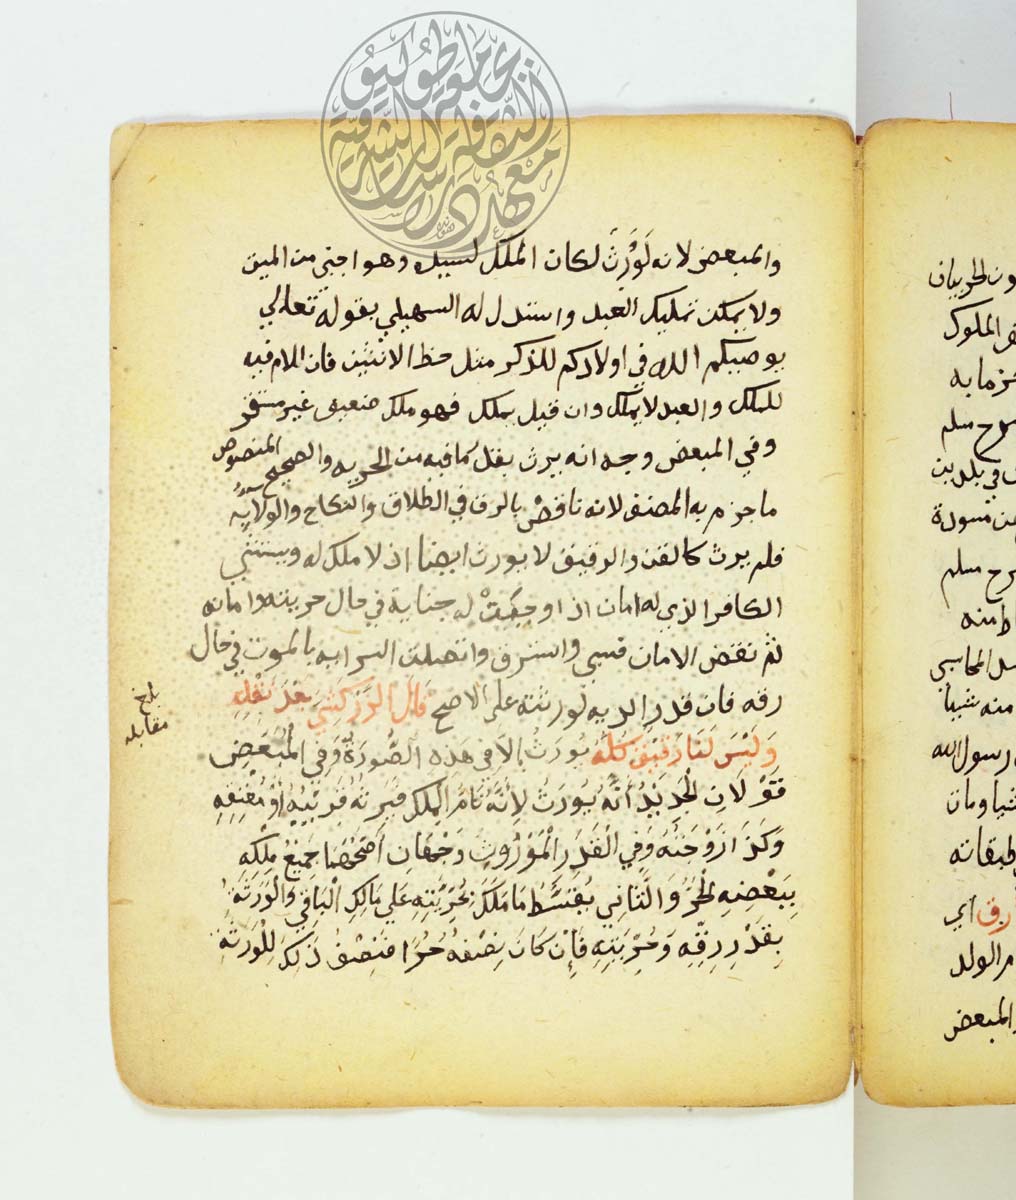 والمبعض لانه لَوْ وَرِثَ لكان الملك لسيده وهو اجنبي من الميت
ولا يمكن تمليك العبد واستدل له السهيلي بقوله تعالي
يوصيكم الله في اولادكم للذكر مثل حظ الانثيين فان اللام فيه
للملك والعبد لا يملك وان قيل يملك فهو ملك ضعيف غير مستقر
وفي المبعض وجه انه يرث بقدر ما فيه من الحريه والصحيح المنصوص
ما جزم به المصنف لانه ناقصٌ بالرق في الطلاق والنكاح والولايه
فلم يرث كالقن والرقيق لا يورث ايضا اذ لا ملك له ويستثني
الكافر الذي له امان اذا وجبتْ له جناية في حال حريته وامانه
ثم نقض الامان فسبي واسترق واتصلت السرايه بالموت في حال
رقه فان قدر الديه لورثته علي الاصح قال الزركشي بعد نقله
وليس لنا رقيق كله يورث إلا في هذه الصورة وفي المبعض
قولان الجديد أنه يورث لأنه تام الملك فيرثه قريبه أو معتقه
وكذا زوجته وفي القدر الموروث وجهان أصحهما جميع ملكه
ببعضه الحر والثاني يقسط ما ملكه بحريته علي مالك الباقي والورثة
بقدر رقه وحريته فإن كان نصفه حرا فنصف ذلك للورثة
بلغ
مقابله
ون الحربيان
الملوك
جزما به
مسلم
في بلدين
مسلم
منه
منه شيئا
رسول الله
شيئا ومات
طبقاته
رق اي
الولد
المبعض
جامعة طوكيو
معهد دراسات الثقافة الشرقية